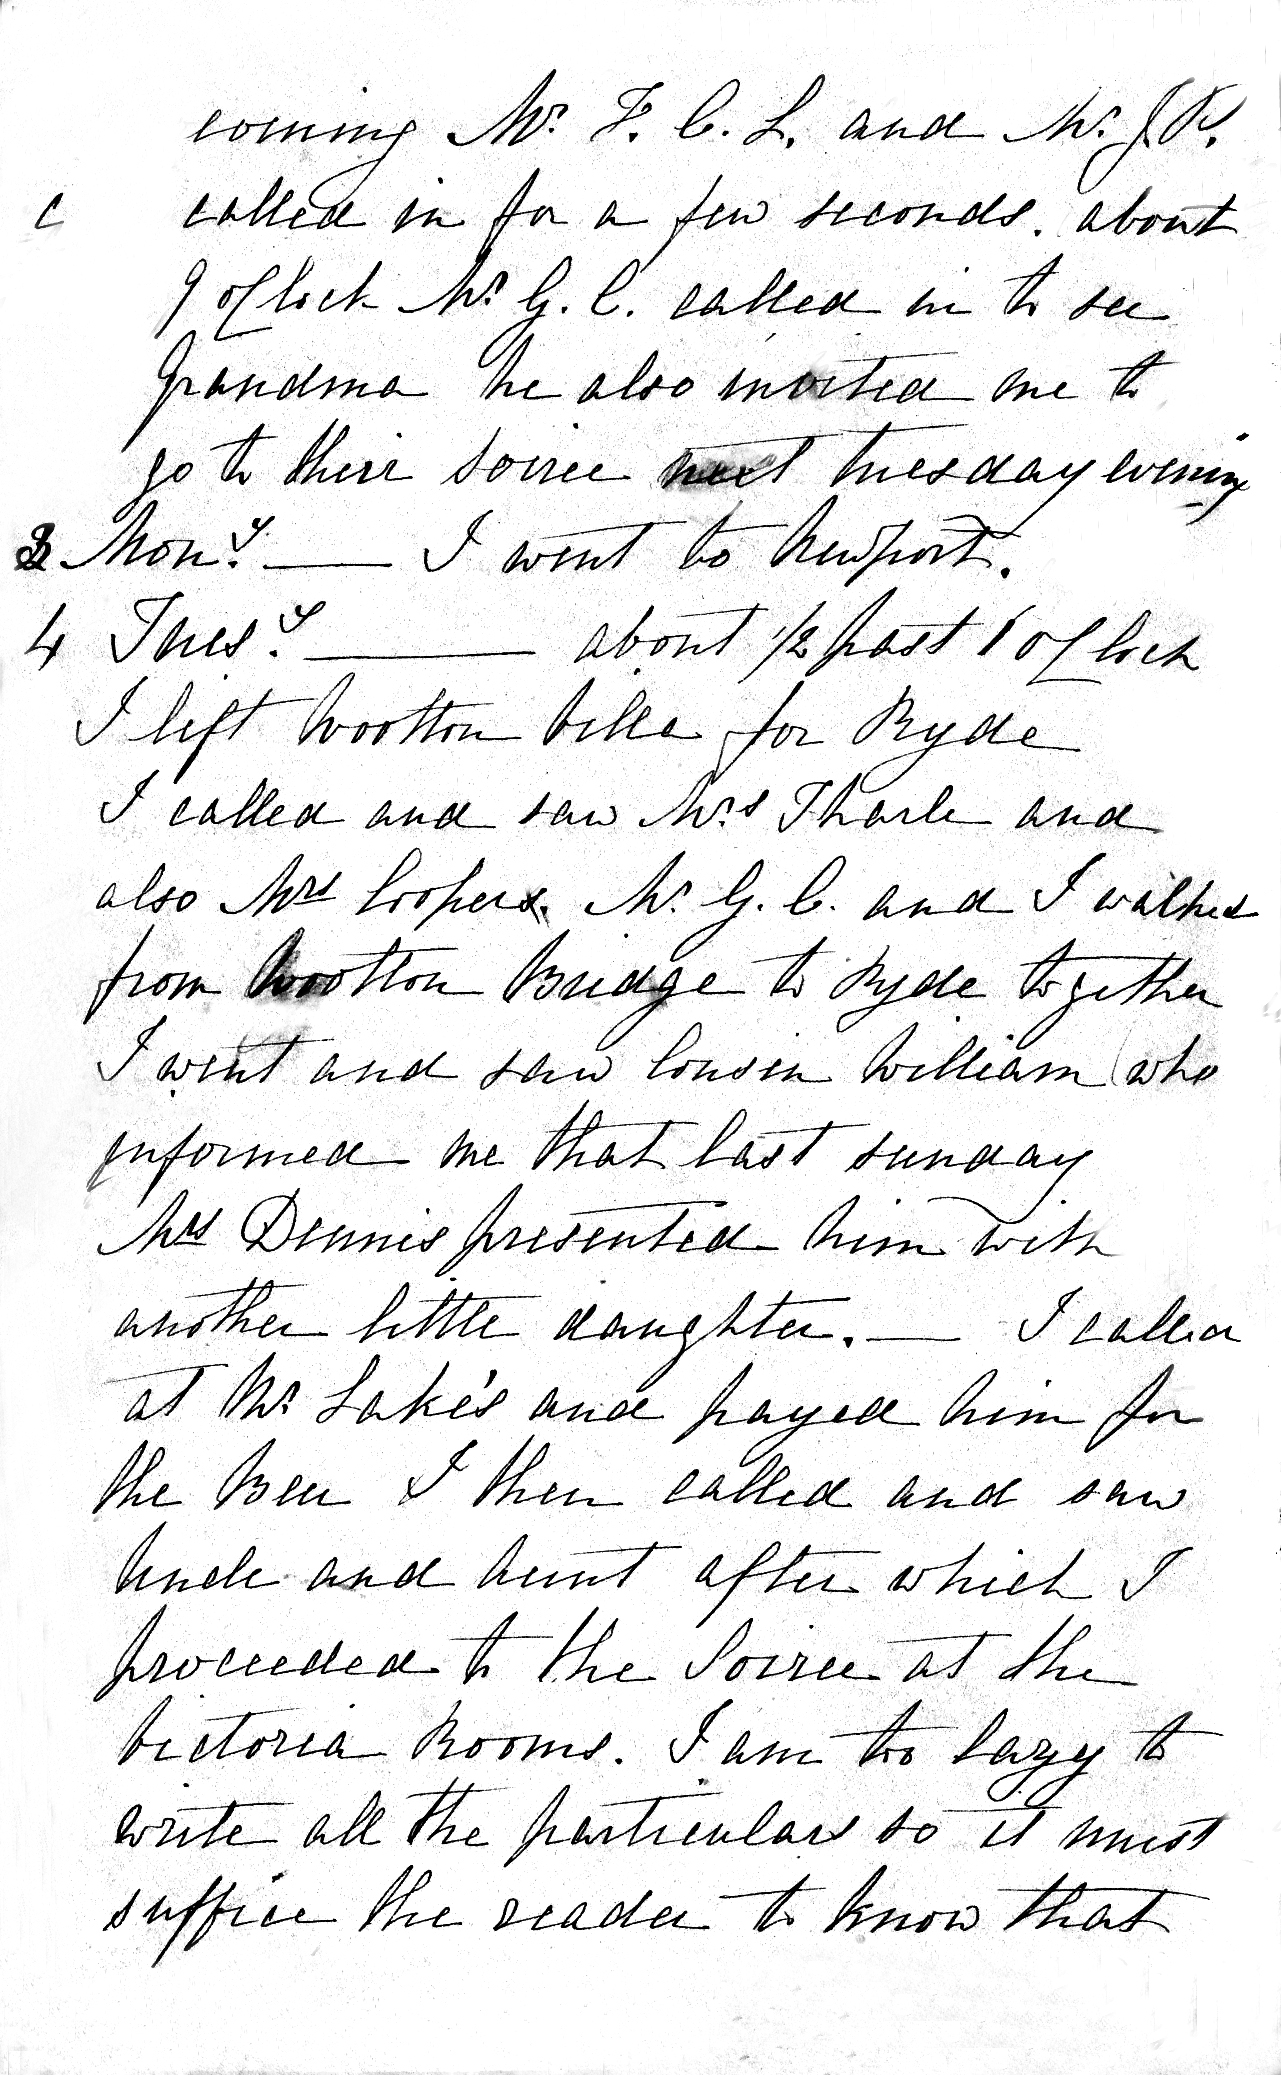 evening Mr. F. C. L. and Mr. J. P.
c called in for a few seconds. about
9 o'Clock Mr. G. C. called in to see
Grandma he also invited me to
go to their Soiree next tuesday evening
3 Mon.y — I went to Newport.
4 Tues.y — about 1/2 past 1 o'Clock
I left Wootton Villa for Ryde
I called and saw Mrs Tharle and
also Mrs Coopers. Mr. G. C. and I walked
from Wootton Bridge to Ryde together
I went and saw Cousin William (who
informed me that last sunday
Mrs Dennis presented him with
another little daughter. — I called
at Mr Lake's and payed him for
the Beer I then called and saw
Uncle and Aunt after which I
proceeded to the Soiree at the
Victoria Rooms. I am too lazy to
write all the particulars so it must
suffice the reader to know that